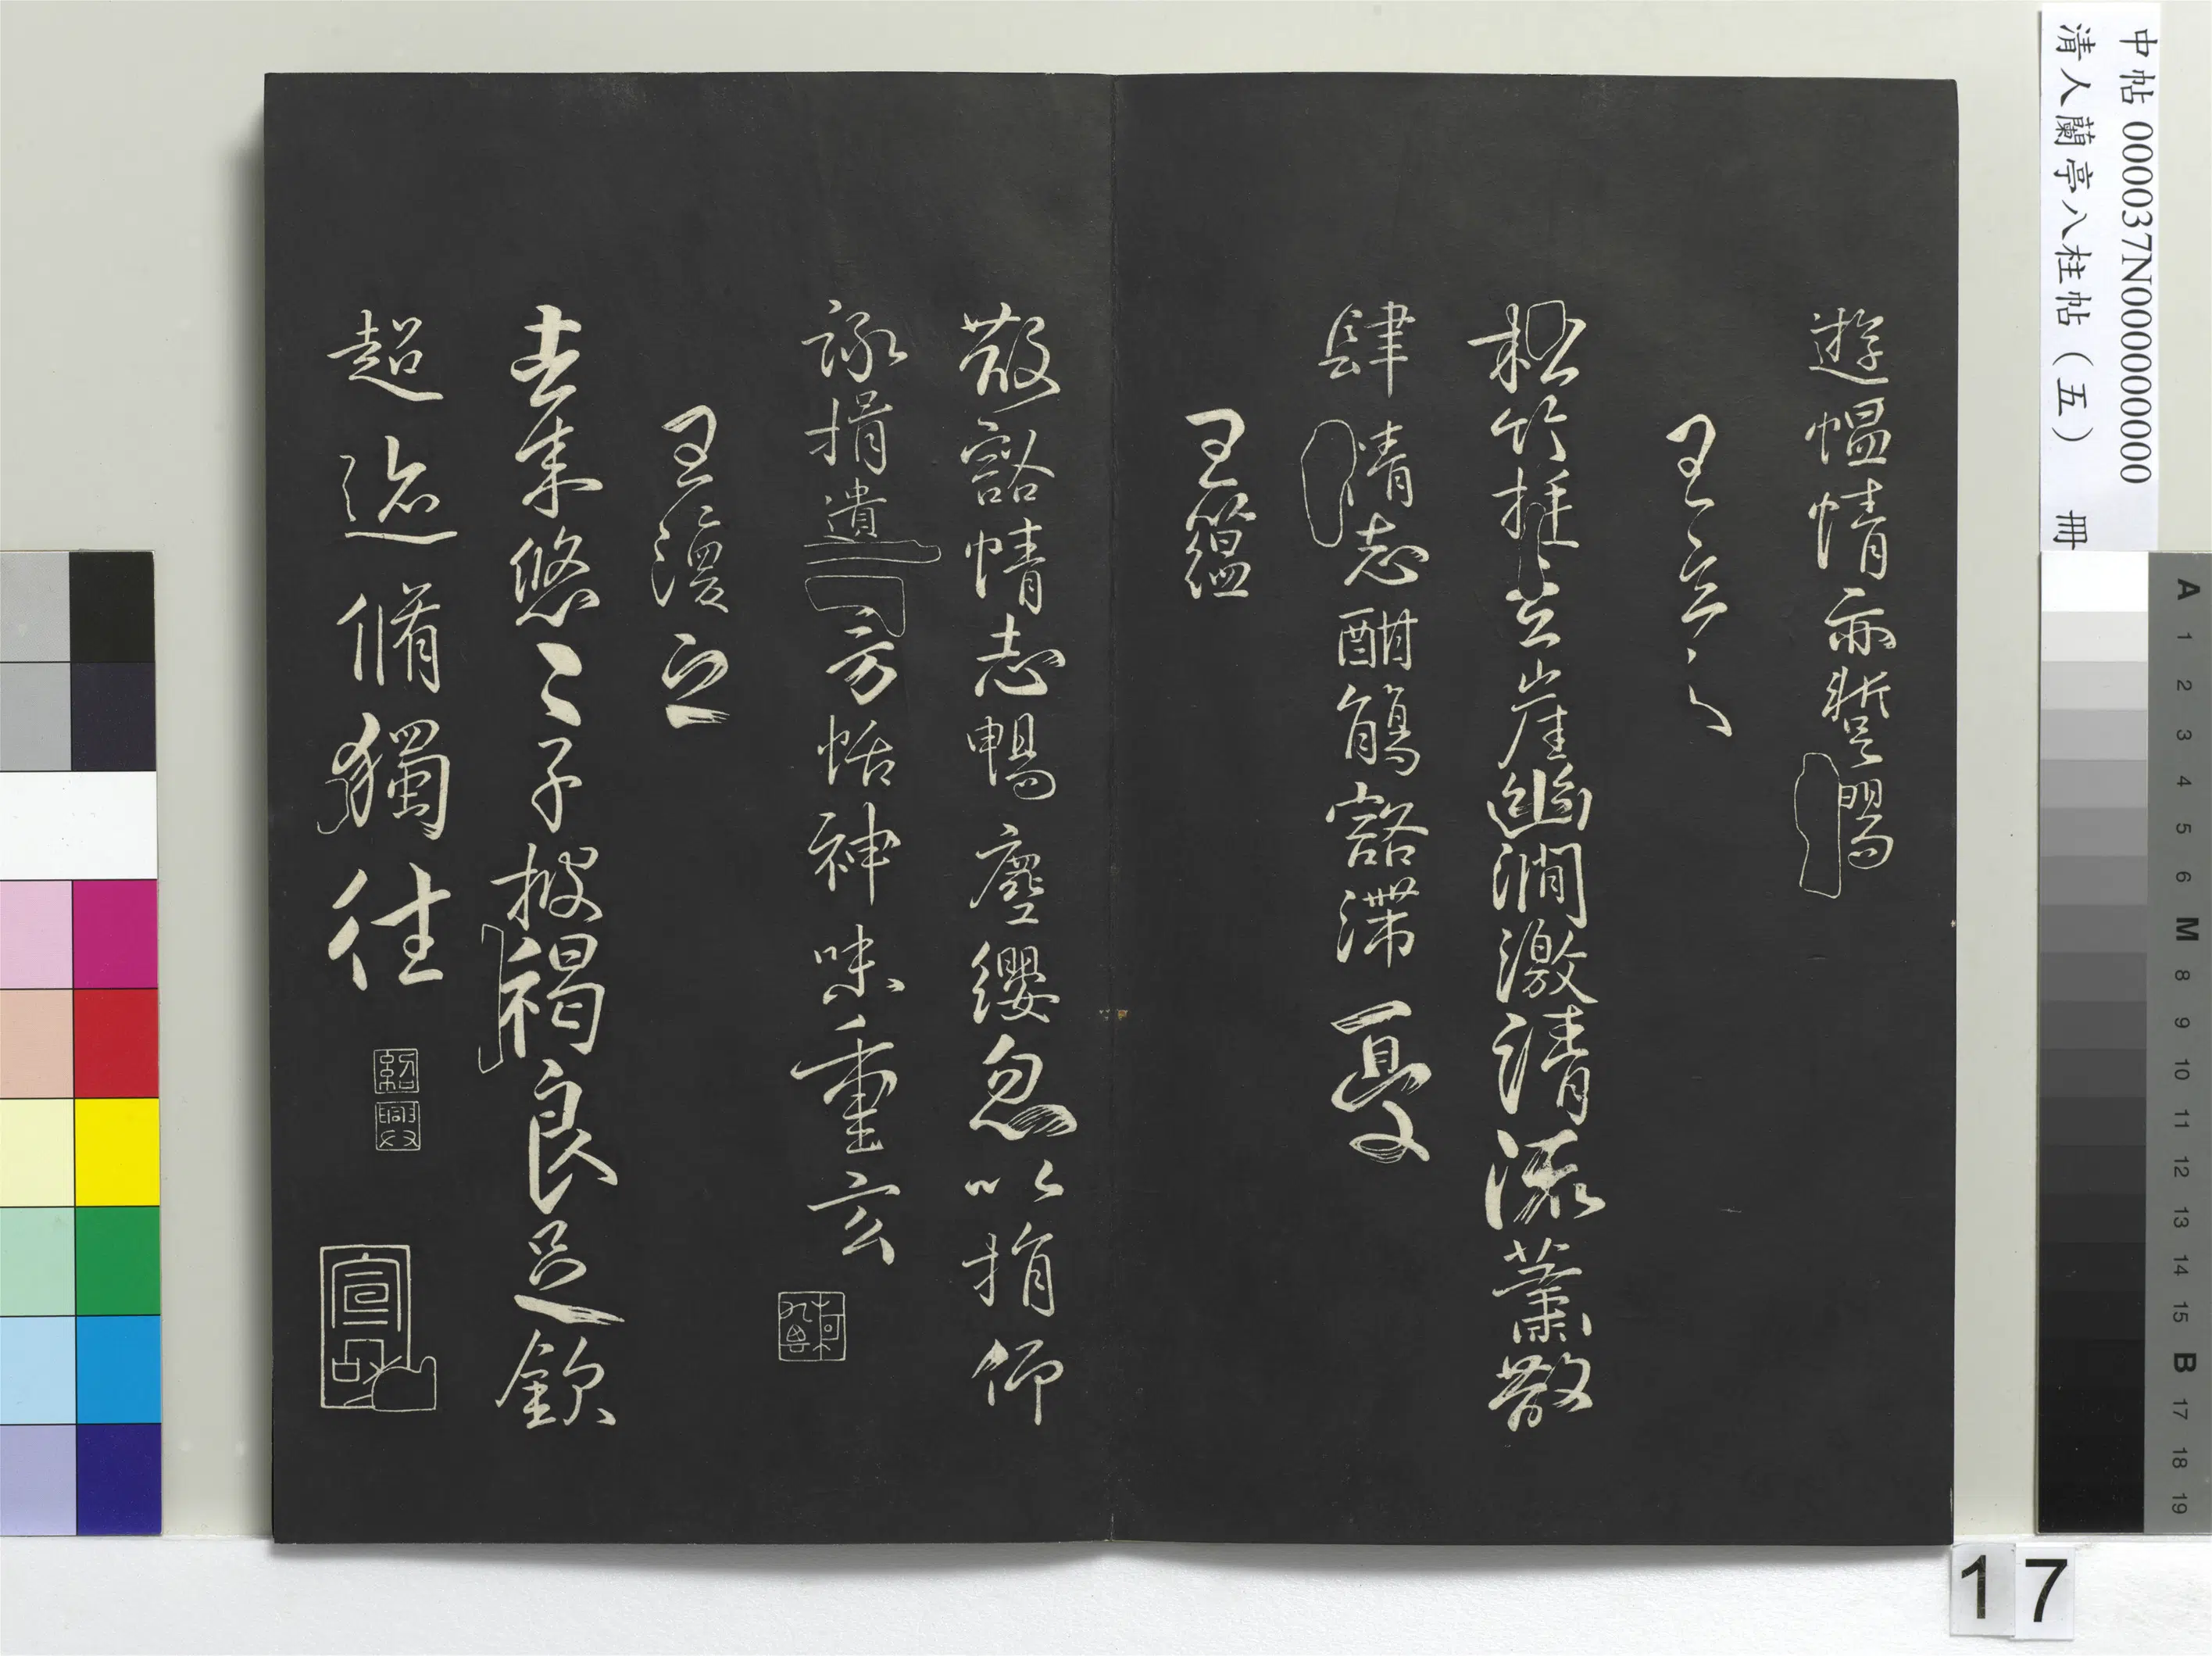 中帖 000037N000000000
清人蘭亭八柱帖（五） 冊
遊慍情亦蹔暢
王玄之
松竹挺巖崖幽澗激清流蕭散
肆情志酣觴豁滯憂
王蘊
散豁情志暢塵纓忽以捐仰
詠揖遺方恬神味重玄
王渙之
去來悠〻子披褐良足欽
超迹脩獨往
紹興
宣和
17
A 1 2 3 4 5 6 M 8 9 10 11 12 13 14 15 B 17 18 19